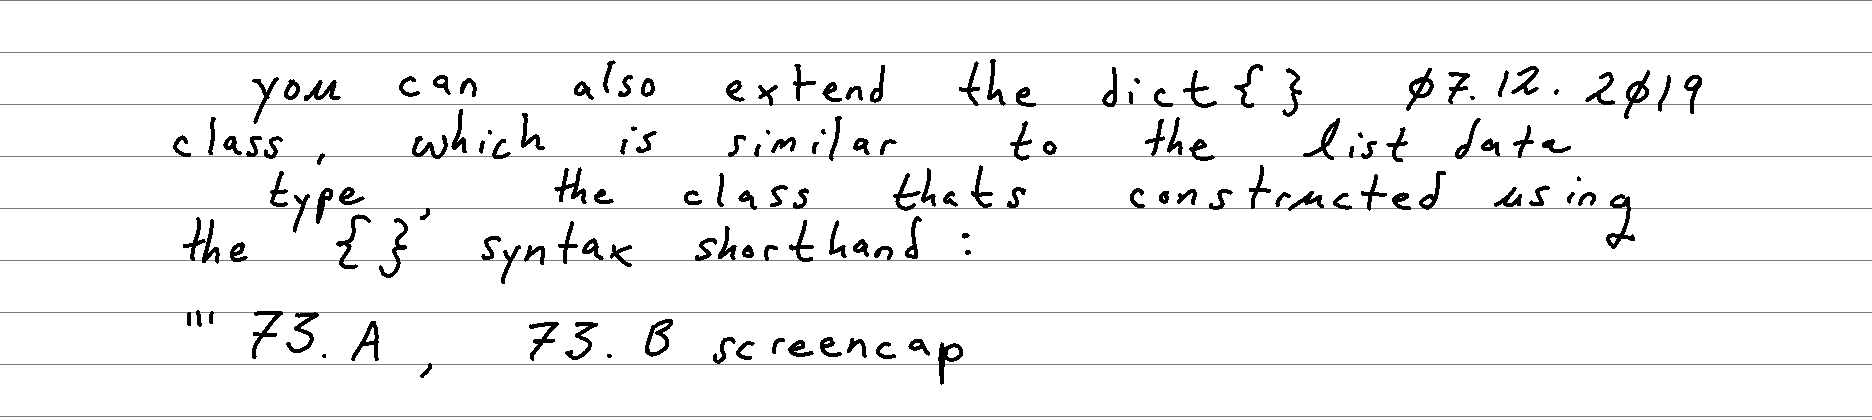 you can also extend the dict{ } 07.12.2019
class, which is similar to the list data
type, the class thats constructed using
the "{ }" syntax shorthand :
''' 73. A, 73. B screencap